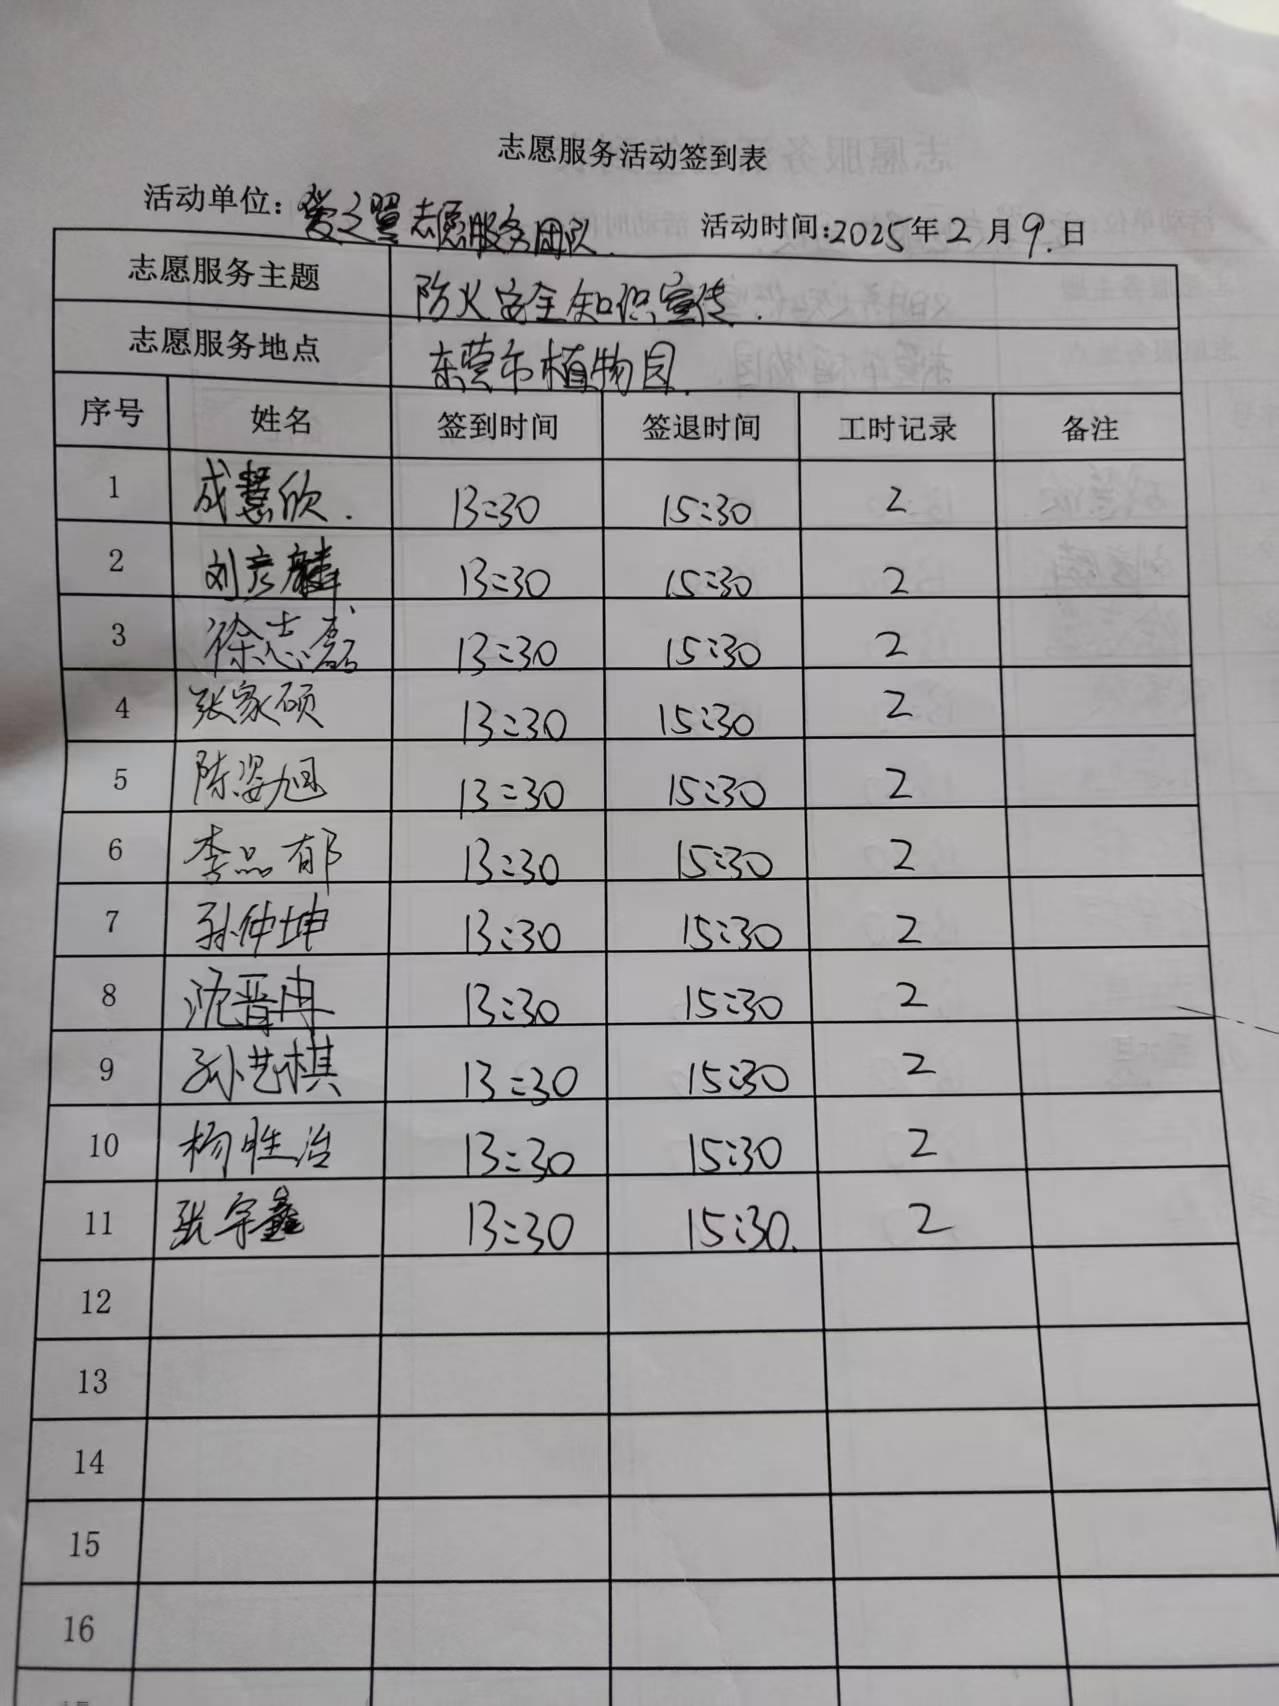 志愿服务活动签到表
活动单位：爱之翼志愿服务团队. 活动时间：2025年2月9.日
志愿服务主题 防火安全知识宣传.
志愿服务地点 东莞市植物园.
序号 姓名 签到时间 签退时间 工时记录 备注
1 成慧欣. 13:30 15:30 2
2 刘彦麟 13:30 15:30 2
3 徐志磊 13:30 15:30 2
4 张家硕 13:30 15:30 2
5 陈姿旭 13:30 15:30 2
6 李品郁 13:30 15:30 2
7 孙仲坤 13:30 15:30 2
8 沈晋冉 13:30 15:30 2
9 孙艺棋 13:30 15:30 2
10 杨胜治 13:30 15:30 2
11 张宇鑫 13:30 15:30. 2
12
13
14
15
16